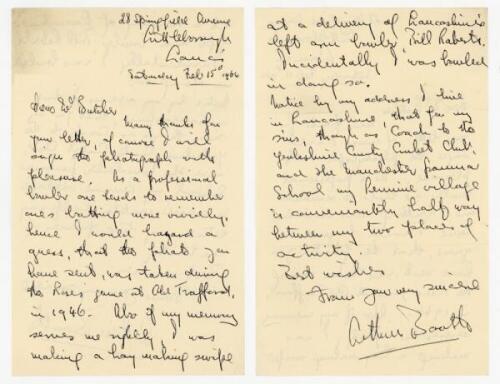 28 Springfield Avenue
Littleborough
Lancs
Saturday Feb 15th 1964
Dear Mr Butcher
Many thanks for
your letter, of course I will
sign the photograph with
pleasure. As a professional
bowler one tends to remember
ones batting more vividly,
hence I would hazard a
guess, that the photo you
have sent, was taken during
the Roses game at Old Trafford,
in 1946. Also if my memory
serves me rightly, I was
making a hay making swipe
at a delivery of Lancashire's
left arm bowler, Bill Roberts.
Incidentally I was bowled
in doing so.
Notice by my address I live
in Lancashire, that for my
sins, though as, Coach to the
Yorkshire County Cricket Club,
and the Manchester Grammar
School my Pennine village
is conveniently half way
between my two places of
activity
Best wishes
From your very sincere
Arthur Booth